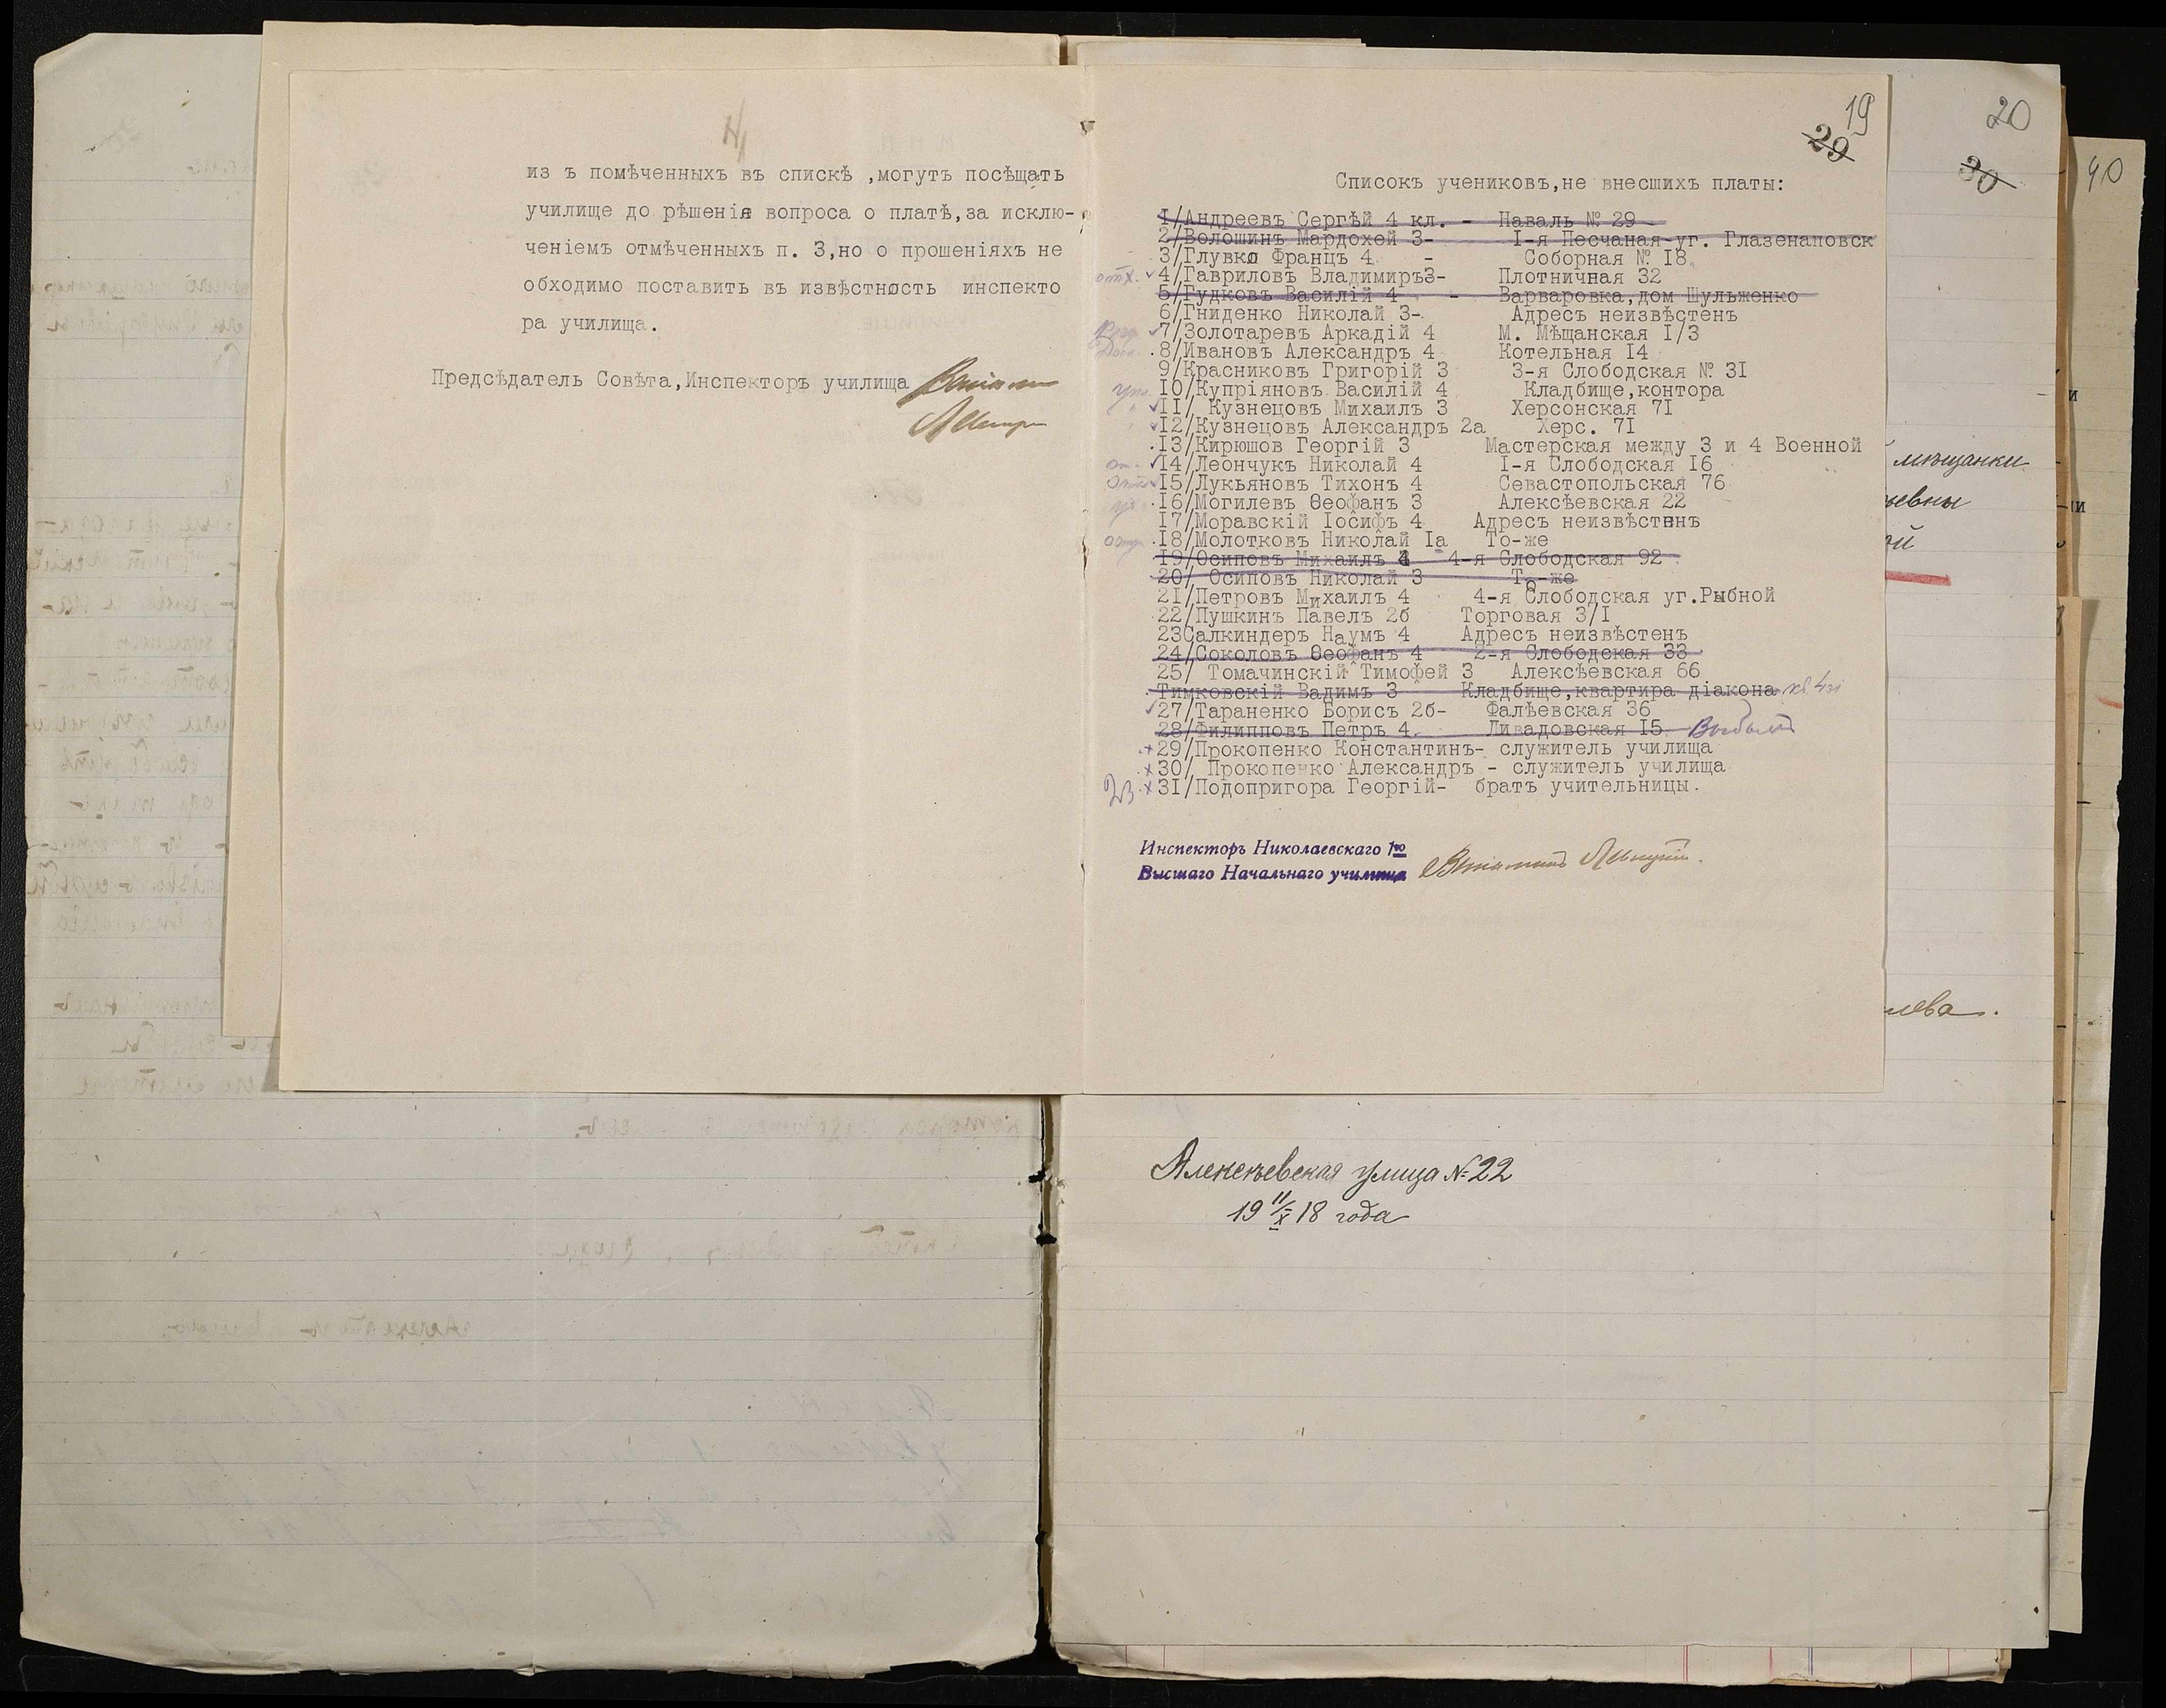 из ъ помѣченныхъ въ спискѣ ,могутъ посѣщать
училище до рѣшенія вопроса о платѣ,за исклю-
ченіемъ отмѣченныхъ п. 3,но о прошеніяхъ не
обходимо поставить въ извѣстность инспекто
ра училища.
Предсѣдатель Совѣта,Инспекторъ училища
19
29
Списокъ учениковъ,не внесшихъ платы:
I/Андреевъ Сергѣй 4 кл. - Наваль № 29
2/Волошинъ Мардохей 3- I-я Песчаная уг. Глазенаповск
3/Глувко Францъ 4 - Соборная № I8
4/Гавриловъ Владимиръ3- Плотничная 32
5/Гудковъ Василій 4 - Варваровка,дом Шульженко
6/Гниденко Николай 3- Адресъ неизвѣстенъ
7/Золотаревъ Аркадій 4 М. Мѣщанская I/3
8/Ивановъ Александръ 4 Котельная I4
9/Красниковъ Григорій 3 3-я Слободская № 3I
I0/Купріяновъ Василій 4 Кладбище,контора
II/ Кузнецовъ Михаилъ 3 Херсонская 7I
I2/Кузнецовъ Александръ 2а Херс. 7I
I3/Кирюшов Георгій 3 Мастерская между 3 и 4 Военной
I4/Леончукъ Николай 4 I-я Слободская I6
I5/Лукьяновъ Тихонъ 4 Севастопольская 76
I6/Могилевъ Ѳеофанъ 3 Алексѣевская 22
I7/Моравскій Іосифъ 4 Адресъ неизвѣстенъ
I8/Молотковъ Николай Iа То-же
I9/Осиповъ Михаилъ 4 4-я Слободская 92
20/ Осиповъ Николай 3 То-же
2I/Петровъ Михаилъ 4 4-я Слободская уг.Рыбной
22/Пушкинъ Павелъ 2б Торговая 3/I
23Салкиндеръ Наумъ 4 Адресъ неизвѣстенъ
24/Соколовъ Ѳеофанъ 4 2-я Слободская 33
25/ Томачинскій Тимофей 3 Алексѣевская 66
Тимковскій Вадимъ 3 Кладбище,квартира діакона
27/Тараненко Борисъ 2б- Фалѣевская 36
28/Филипповъ Петръ 4. Ливадовская I5 Выбылъ
29/Прокопенко Константинъ- служитель училища
30/ Прокопенко Александръ - служитель училища
23 3I/Подопригора Георгій- братъ учительницы.
Инспекторъ Николаевскаго 1го
Высшаго Начальнаго училища
20
30
40
мѣщанки
Алексѣевская улица № 22
19 11/X 18 года